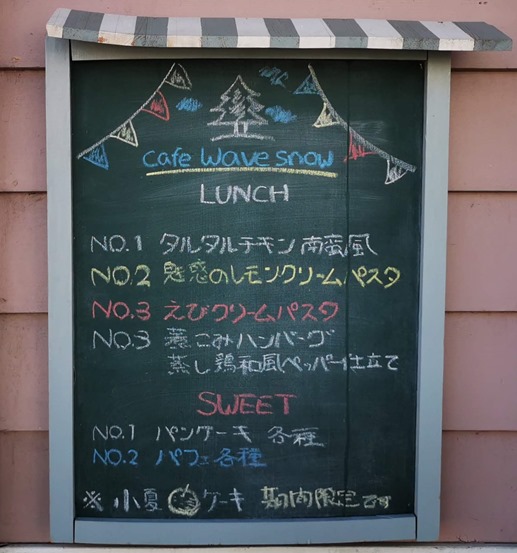 cafe wave snow
LUNCH
NO.1 タルタルチキン南蛮風
NO.2 魅惑のレモンクリームパスタ
NO.3 えびクリームパスタ
NO.3 煮こみハンバーグ
蒸し鶏和風ペッパー仕立て
SWEET
NO.1 パンケーキ 各種
NO.2 パフェ各種
※ 小夏 ケーキ 期間限定です